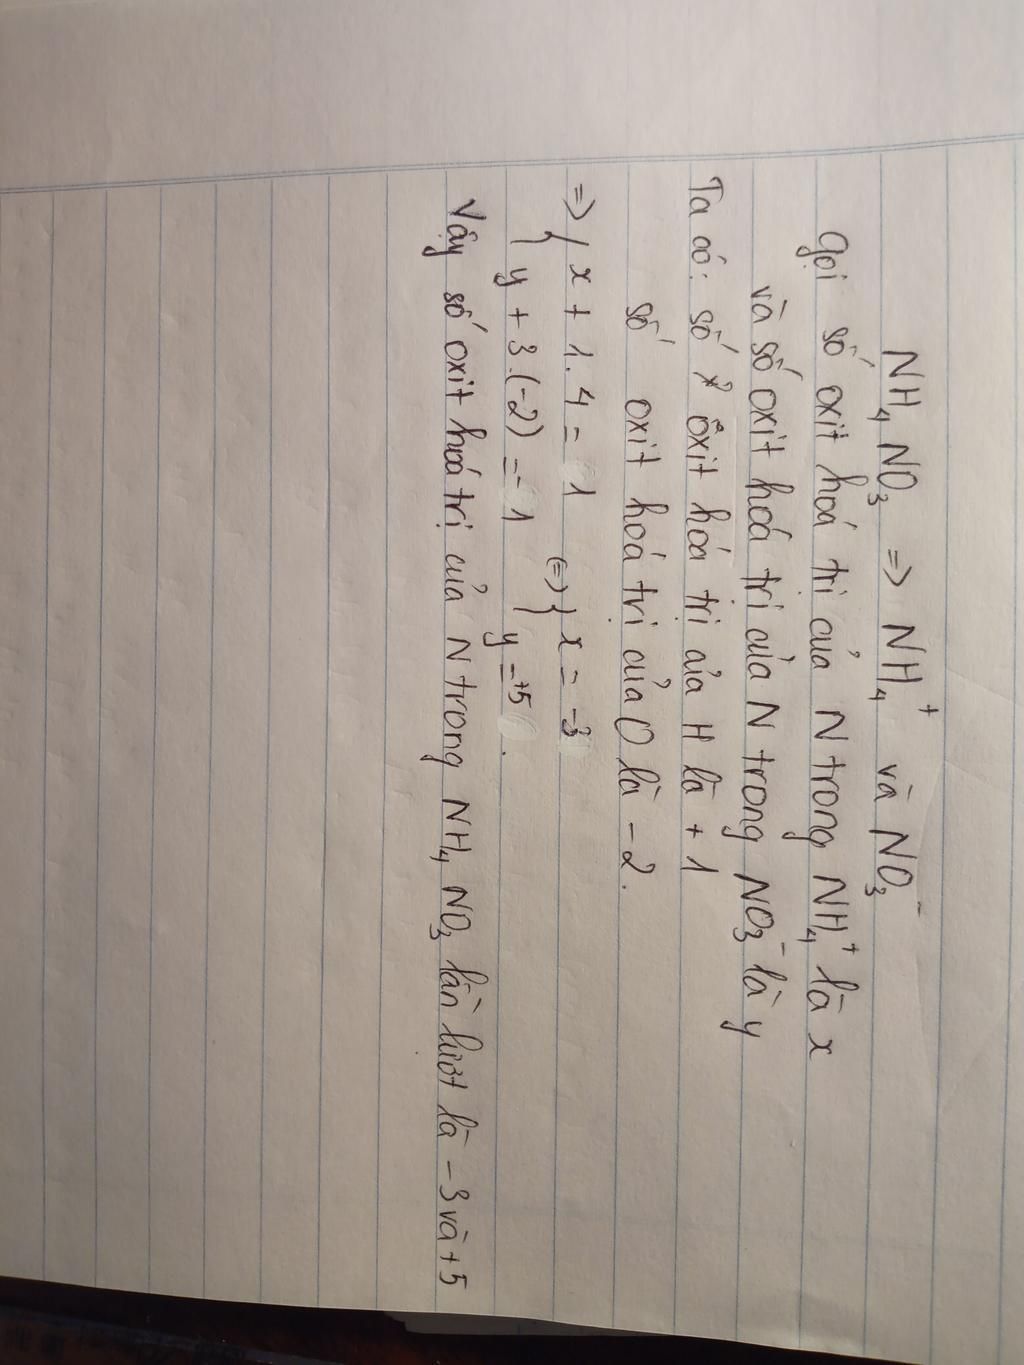 NH₄NO₃ => NH₄⁺ và NO₃⁻
Gọi số oxit hoá trị của N trong NH₄⁺ là x
và số oxit hoá trị của N trong NO₃⁻ là y
Ta có: số ôxit hóa trị của H là +1
số oxit hoá trị của O là -2.
=> { x + 1.4 = 1 (=> { x = -3
{ y + 3.(-2) = -1 { y = +5.
Vậy số oxit hoá trị của N trong NH₄NO₃ lần lượt là -3 và +5